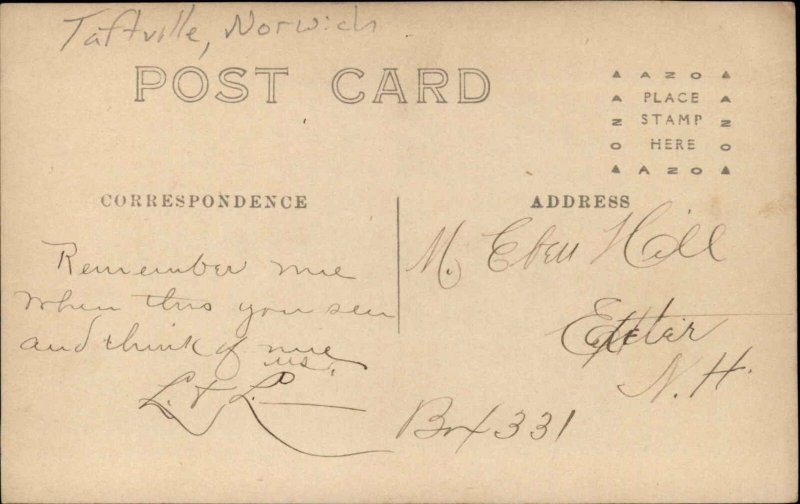 Taftville, Norwich
POST CARD
▲ A Z O ▲
A PLACE A
Z STAMP Z
O HERE O
▲ A Z O ▲
CORRESPONDENCE
ADDRESS
Remember me
when this you see
and think of me
us.
L. & L.
M. Eben Hill
Exeter
N. H.
Box 331